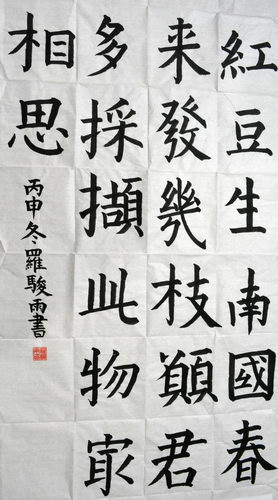 紅豆生南國春
来發幾枝願君
多採擷此物冣
相思
丙申冬羅駿雨書